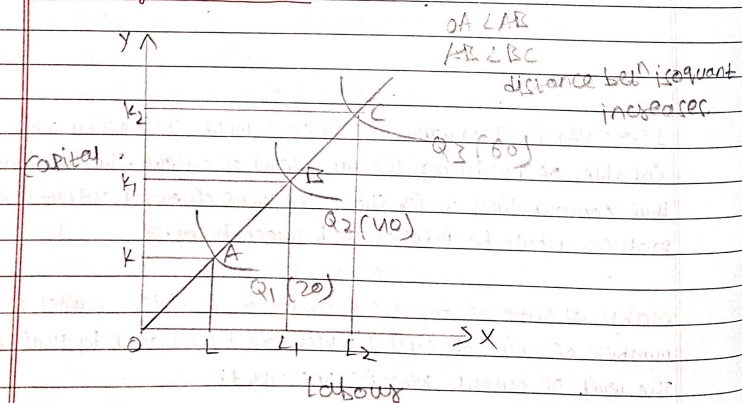 OA < AB
AB < BC
distance betn isoquant
increases
Y
K2
C
Q3 (60)
Capital
K1
B
Q2 (40)
K
A
Q1 (20)
O
L
L1
L2
X
Labour